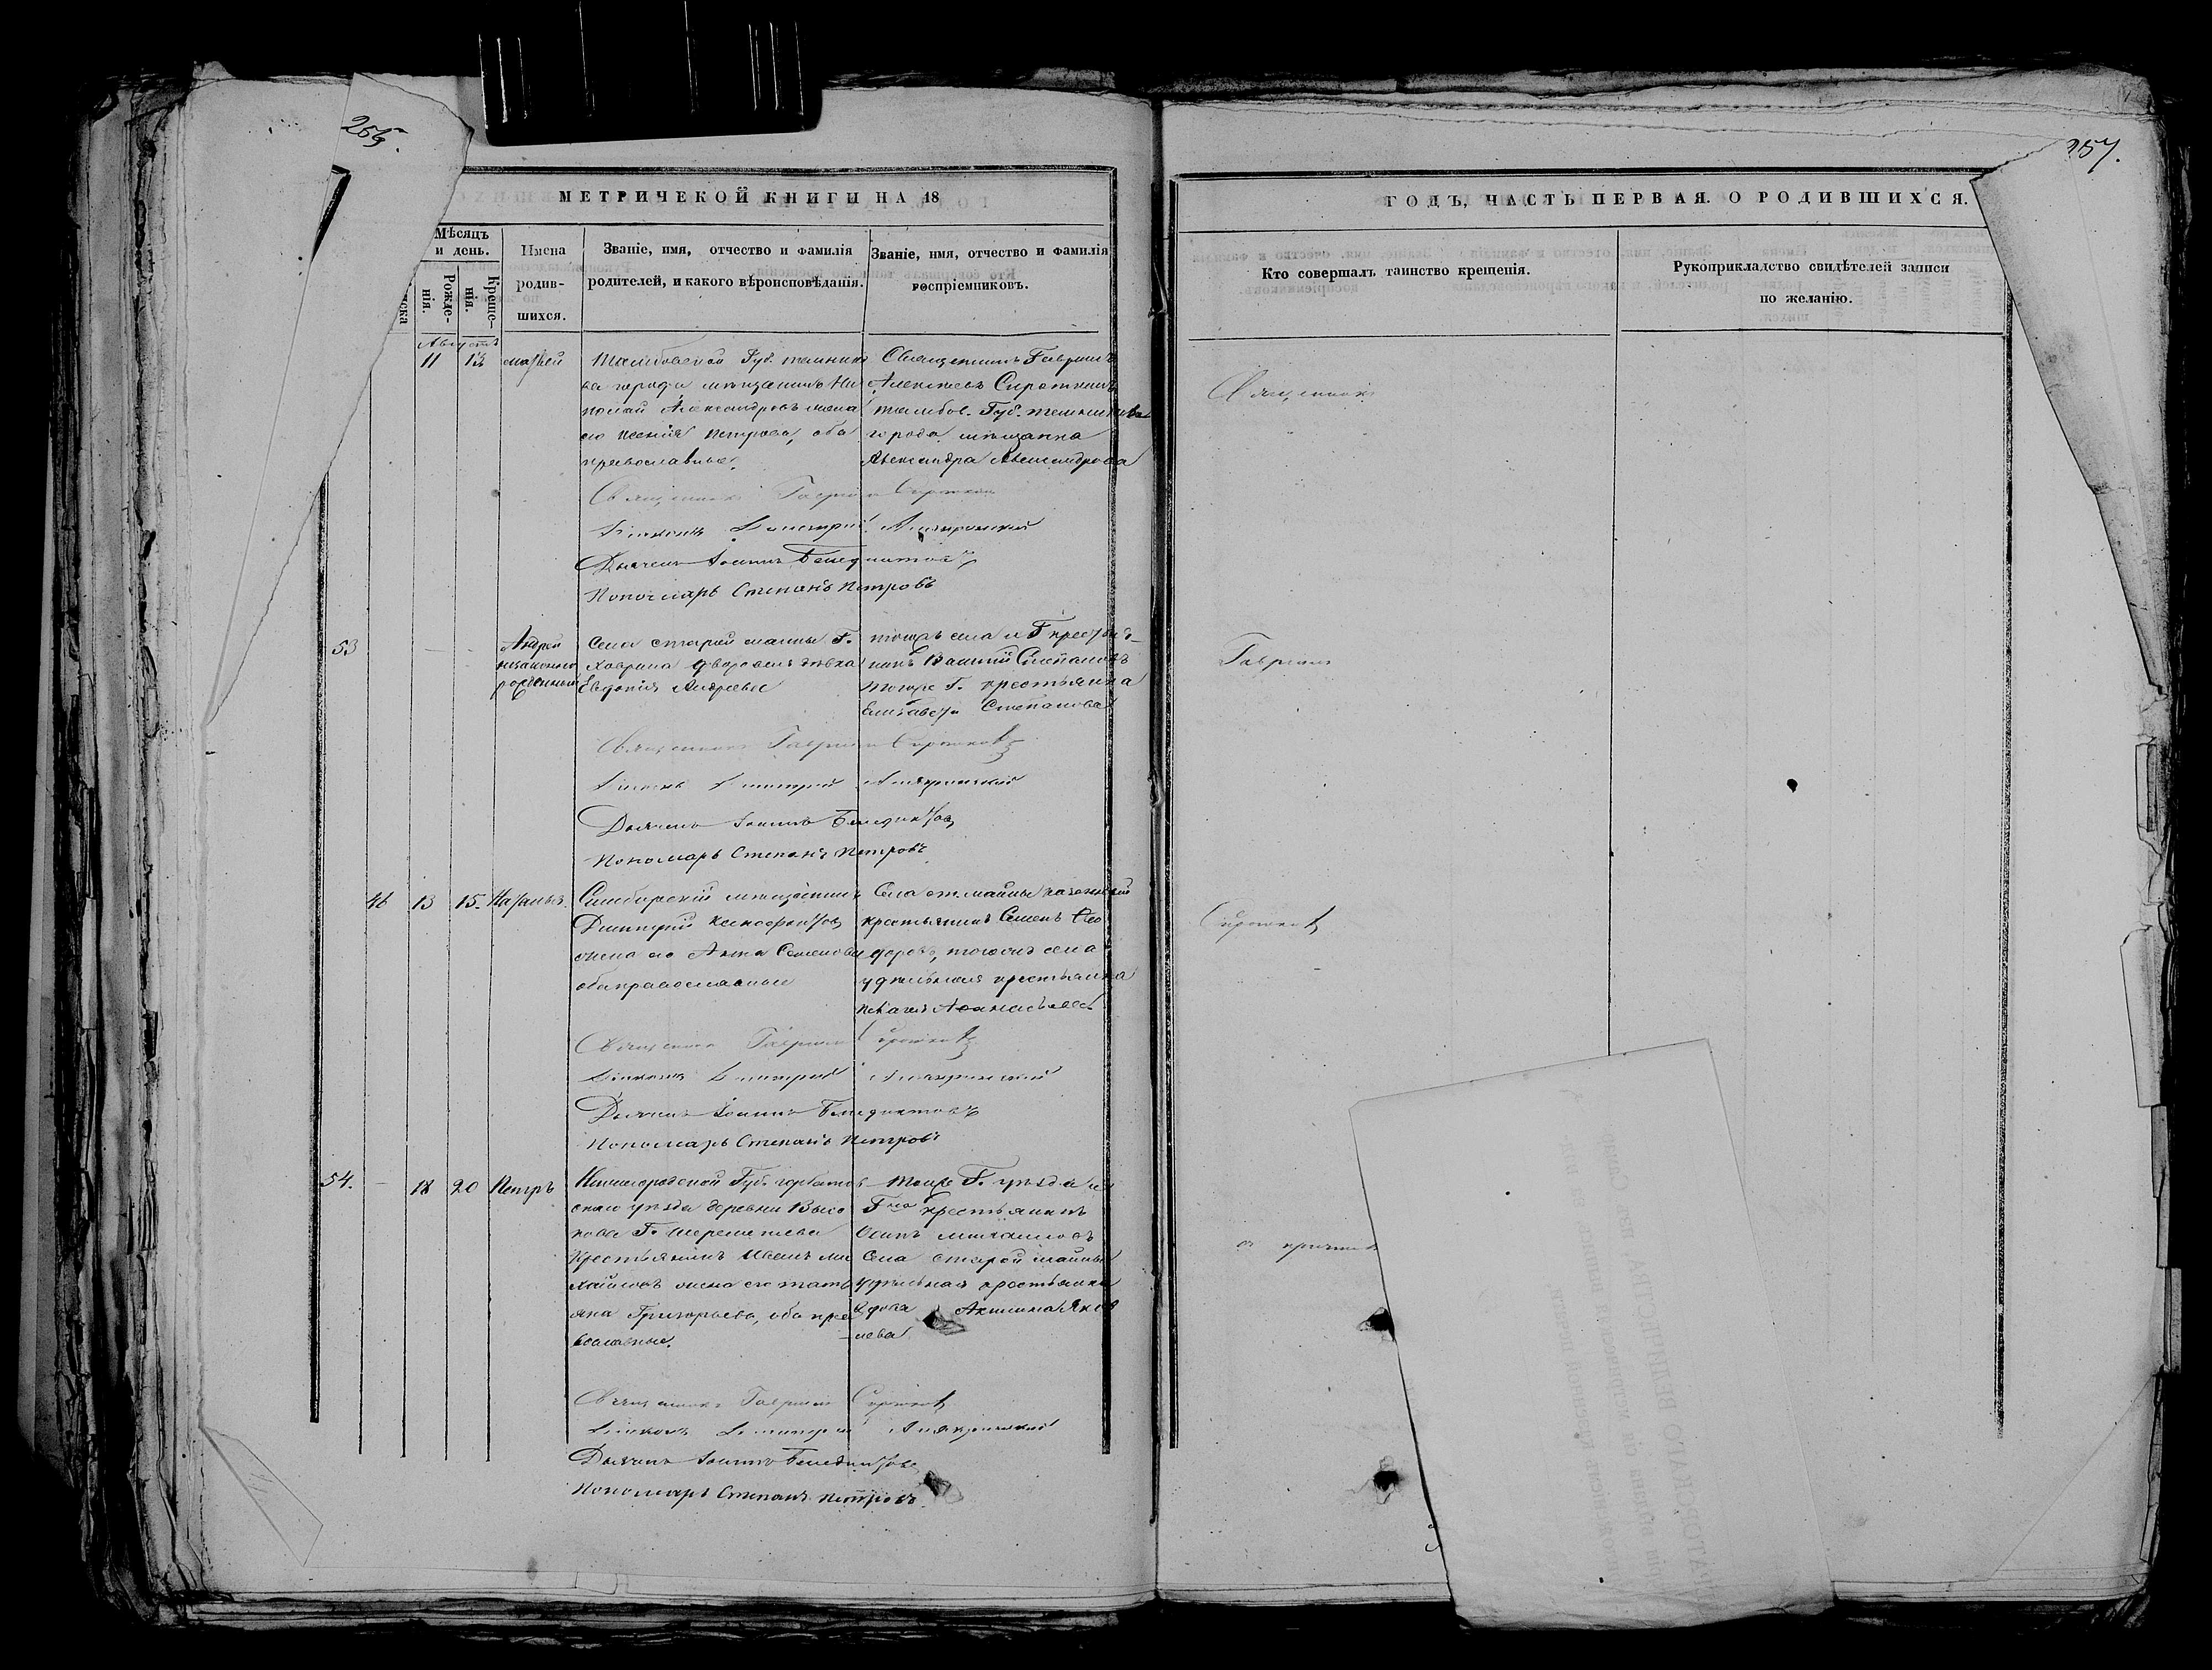 256.
МЕТРИЧЕКОЙ КНИГИ НА 18
Мѣсяцъ
и день.
Рожде-
нія.
Креще-
нія.
Имена
родив-
шихся.
Званіе, имя, отчество и фамилія
родителей, и какого вѣроисповѣданія.
Званіе, имя, отчество и фамилія
воспріемниковъ.
Августъ
11 13 Матвей
Тамбовской Губ. темнико
ва города мѣщанинъ Ни
колай Александровъ жена
его Ксенія Петрова, оба
православные.
Священникъ Гавриилъ
Алексѣевъ Сироткинъ
тамбов. Губ. темникова
города мѣщанка
Александра Александрова
Священникъ Гавриилъ
Діаконъ Димитрий
Дьячекъ Іоаннъ Бенедиктовъ
Пономарь Степанъ Петровъ
53
Андрей
незаконно
рожденный
Села старой майны Г.
дворовая дѣвка
Евдокія Андреева
тогожъ села и Г крестья
нинъ Василий Степановъ
тогоже Г. крестьянка
Елизавета Степанова
Священникъ Гавриилъ
Діаконъ Димитрий
Дьячекъ Іоаннъ Бенедиктовъ
Пономарь Степанъ Петровъ
46 13 15. Наталья.
Симбирскій мѣщанинъ
Димитрий Ксенофонтовъ
жена его Анна Семенова
оба православные
Села ст. майны казенный
крестьянинъ Семенъ Ѳео
доровъ, тогожъ села
удѣльная крестьянка
Пелагея Аѳанасьева
Священникъ Гавриилъ
Діаконъ Димитрий
Дьячекъ Іоаннъ Бенедиктовъ
Пономарь Степанъ Петровъ
54. 18 20 Петръ
Нижегородской Губ. горбатов
скаго уѣзда деревни Высо
кова Г. Шереметева
Крестьянинъ Иванъ Ми
хайловъ жена его тать
яна Григорьева, оба пра
вославные.
Тогоже Г. уѣзда и
Г крестьянинъ
Осипъ Михайловъ
Села старой майны
удѣльная крестьянка
вдова Акилина Яков
лева
Священникъ Гавриилъ
Діаконъ Димитрий
Дьячекъ Іоаннъ Бенедиктовъ
Пономарь Степанъ Петровъ
257.
ГОДЪ, ЧАСТЬ ПЕРВАЯ. О РОДИВШИХСЯ.
Кто совершалъ таинство крещенія.
Рукоприкладство свидѣтелей записи
по желанію.
Священникъ
Гавриилъ
съ причтомъ